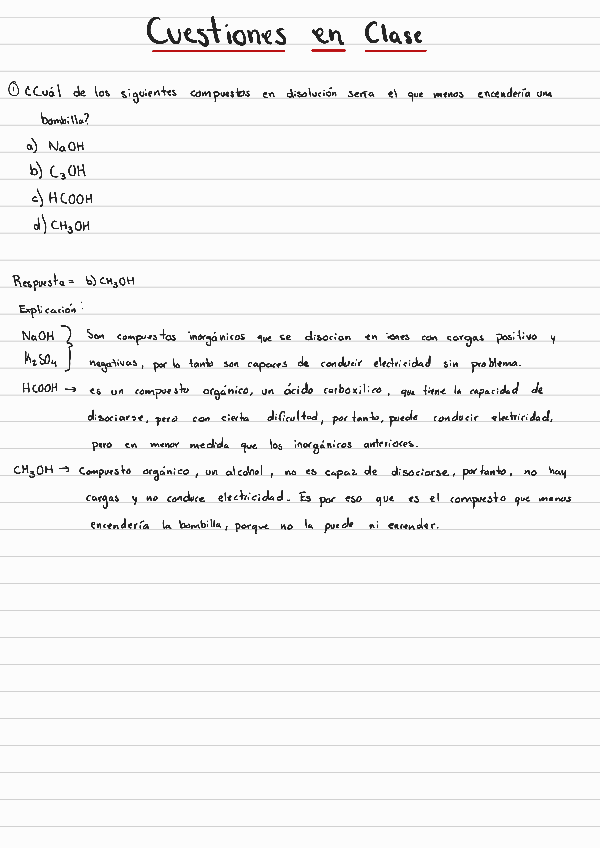 Cuestiones en Clase
① ¿Cuál de los siguientes compuestos en disolución sería el que menos encendería una
bombilla?
a) NaOH
b) C₃OH
c) HCOOH
d) CH₃OH
Respuesta = b) CH₃OH
Explicación:
NaOH } Son compuestos inorgánicos que se disocian en iones con cargas positivo y
K₂SO₄ } negativas, por lo tanto son capaces de conducir electricidad sin problema.
HCOOH → es un compuesto orgánico, un ácido carboxilico, que tiene la capacidad de
disociarse, pero con cierta dificultad, por tanto, puede conducir electricidad,
pero en menor medida que los inorgánicos anteriores.
CH₃OH → Compuesto orgánico, un alcohol, no es capaz de disociarse, por tanto, no hay
cargas y no conduce electricidad. Es por eso que es el compuesto que menos
encendería la bombilla, porque no la puede ni encender.